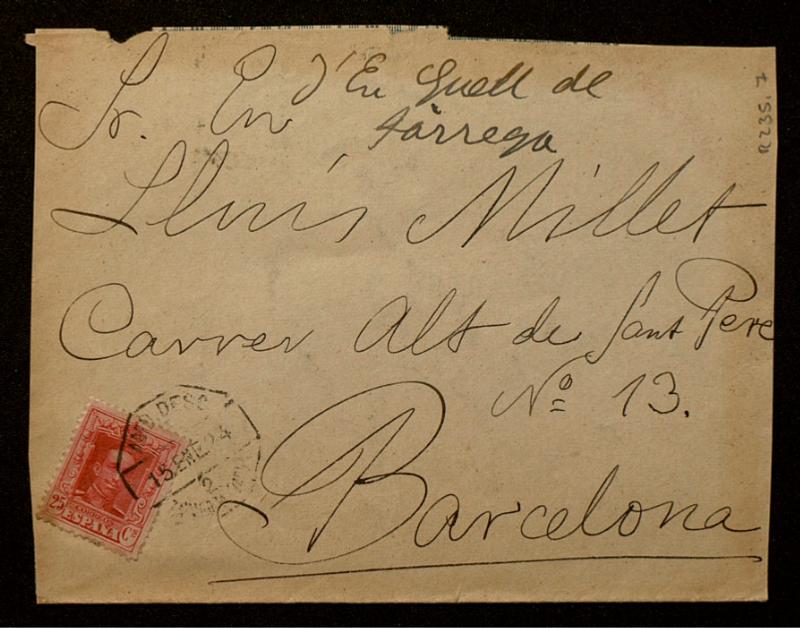 d'En Guell de
Tàrrega
Sr. En
Lluís Millet
Carrer Alt de Sant Pere
Nº 13.
Barcelona
R 235.7
DESC
15 ENE 24
2
25 Cs
ESPAÑA